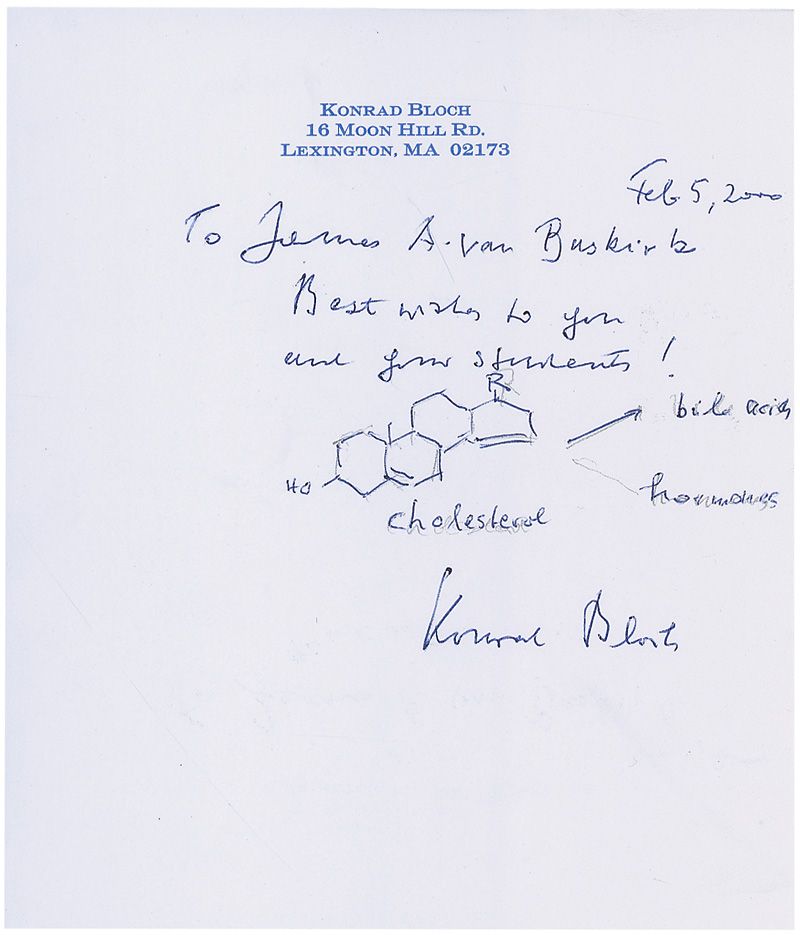 KONRAD BLOCH
16 MOON HILL RD.
LEXINGTON, MA 02173
Feb. 5, 2000
To James A. van Buskirk
Best wishes to you
and your students!
R
bile acids
HO
hormones
cholesterol
Konrad Bloch